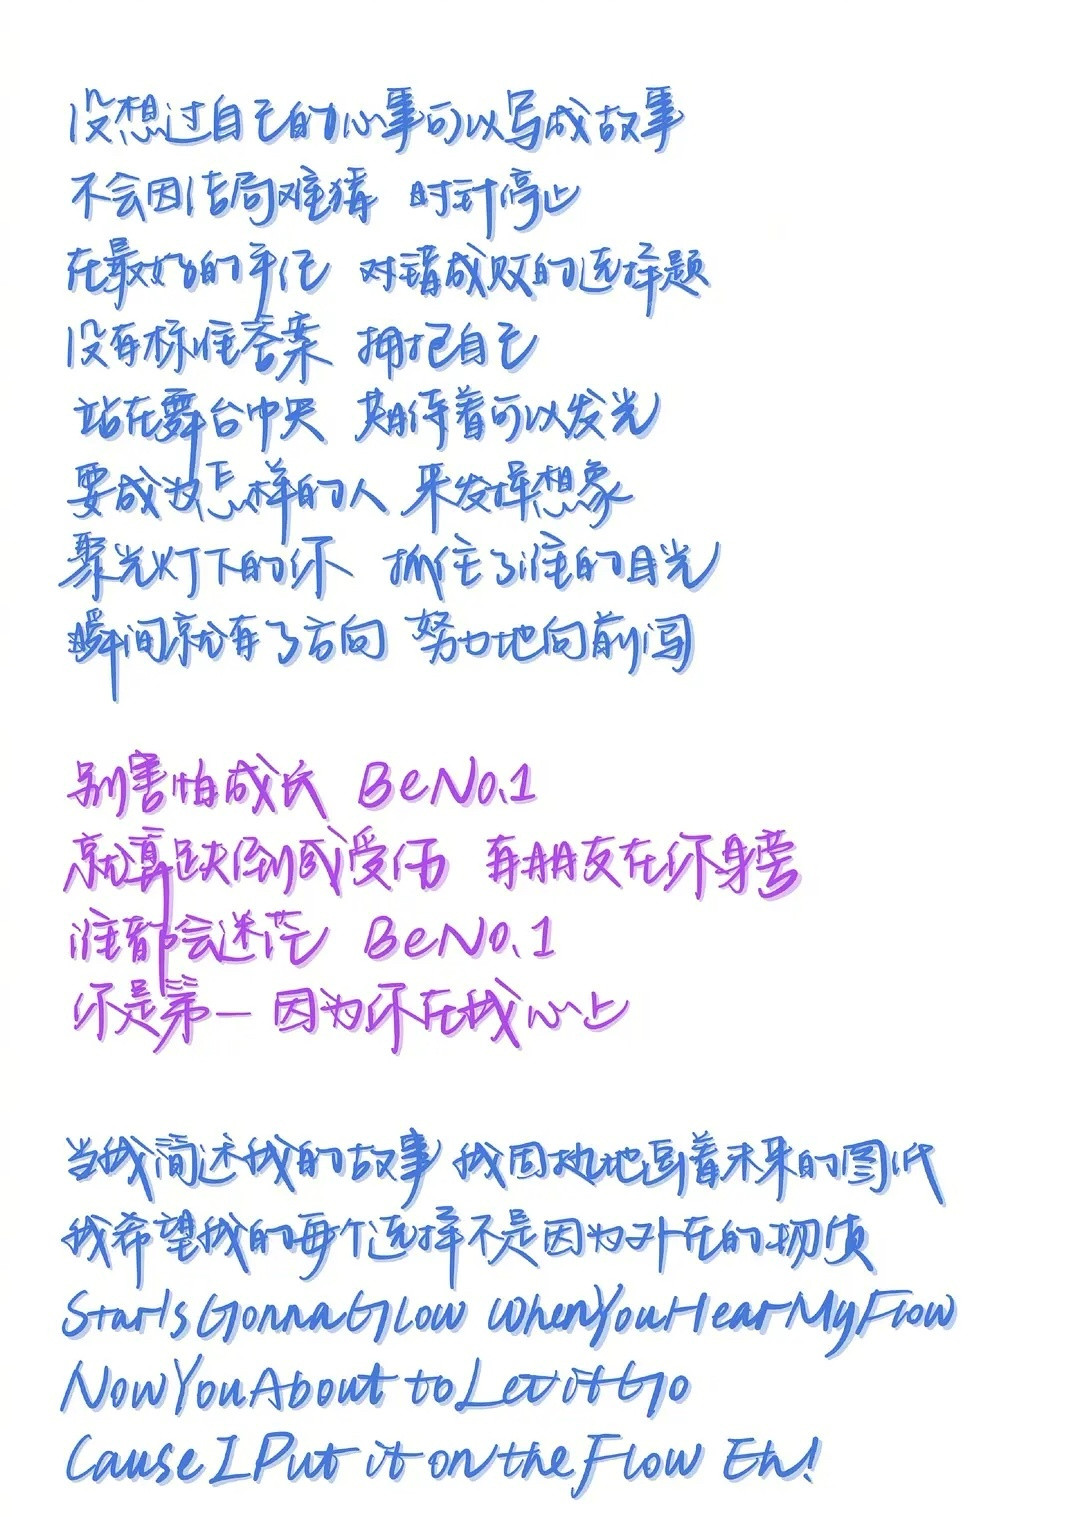 没想过自己的心事可以写成故事
不会因结局难猜 时针停止
在最好的年纪 对错成败的选择题
没有标准答案 拥抱自己
站在舞台中央 期待着可以发光
要成为怎样的人 来发挥想象
聚光灯下的你 抓住了谁的目光
瞬间就有了方向 努力地向前闯
别害怕成长 Be No.1
就算跌倒或受伤 有朋友在你身旁
谁都会迷茫 Be No.1
你是第一 因为你在我心上
当我简述我的故事 我固执地画着未来的图纸
我希望我的每个选择不是因为外在的物质
Star Is Gonna Glow When You Hear My Flow
Now You About to Let it Go
Cause I Put it on the Flow Eh!